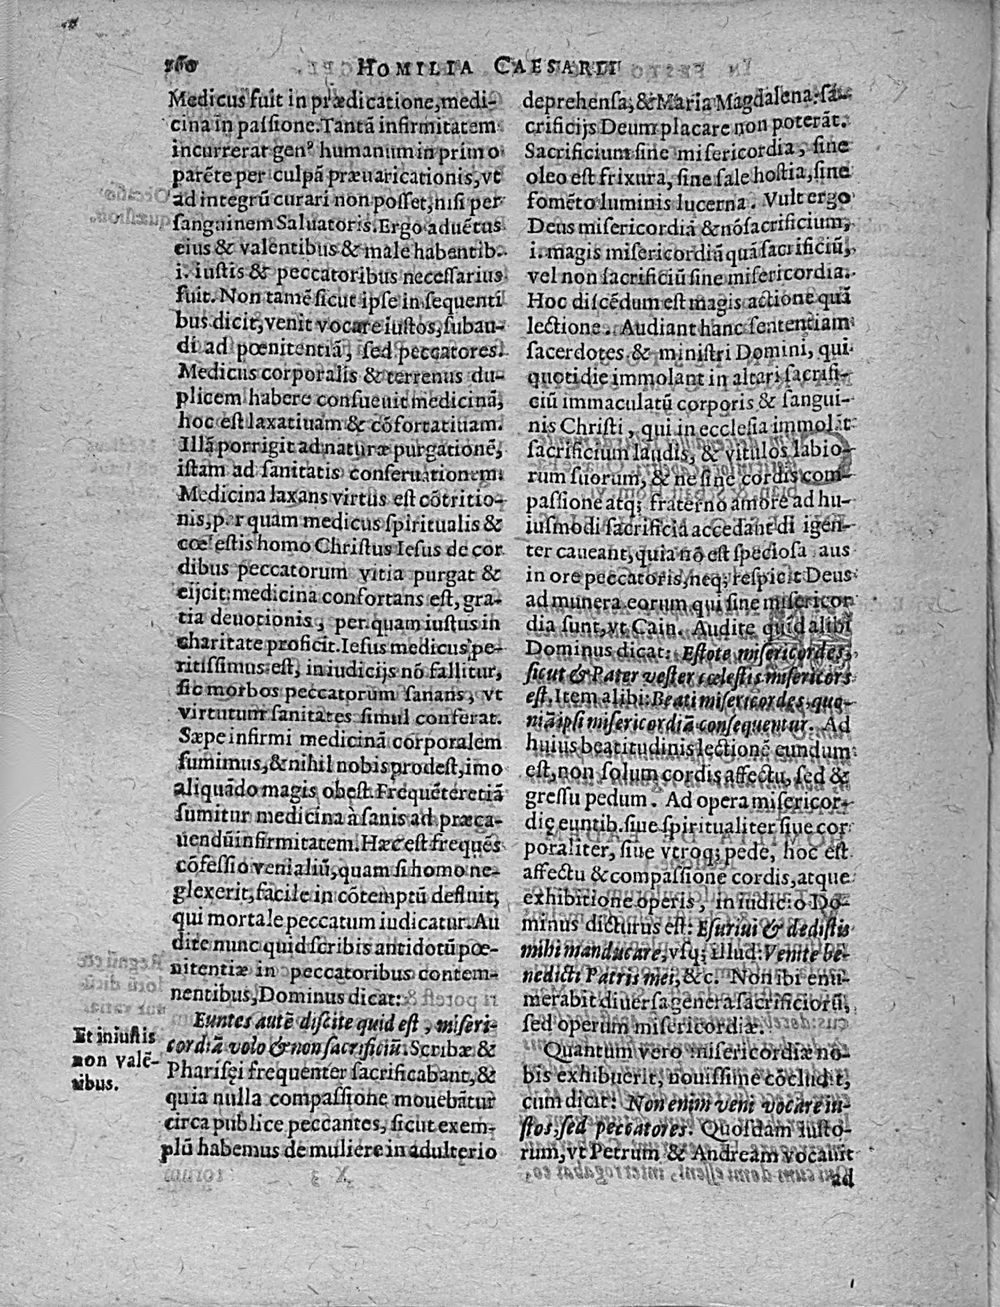 160 HOMILIA CAESARII
Medicus fuit in prædicatione, medi-
cina in passione. Tantā infirmitatem
incurrerat genꝰ humanum in primo
parēte per culpā præuaricationis, vt
ad integrū curari non posset, nisi per
sanguinem Saluatoris. Ergo aduētus
eius & valentibus & male habentib.
i. iustis & peccatoribus necessarius
fuit. Non tamē sicut ipse in sequenti
bus dicit, venit vocare iustos, subau-
di ad pœnitentiā, sed peccatores.
Medicus corporalis & terrenus du-
plicem habere consueuit medicinā,
hoc est laxatiuam & cōfortatiuam.
Illā porrigit ad naturæ purgationē,
istam ad sanitatis conseruationem.
Medicina laxans virtus est cōtritio-
nis, per quam medicus spiritualis &
cœlestis homo Christus Iesus de cor
dibus peccatorum vitia purgat &
eijcit: medicina confortans est, gra-
tia deuotionis, per quam iustus in
charitate proficit. Iesus medicus pe-
ritissimus est, in iudicijs nō fallitur,
sic morbos peccatorum sanans, vt
virtutum sanitates simul conferat.
Sæpe infirmi medicinā corporalem
sumimus, & nihil nobis prodest, imo
aliquādo magis obest. Frequēter etiā
sumitur medicina à sanis ad præca-
uendū infirmitatem. Hæc est frequēs
cōfessio venialiū, quam si homo ne-
glexerit, facile in cōtemptū defluit,
qui mortale peccatum iudicatur. Au
dite nunc quid scribis antidotū pœ-
nitentiæ in peccatoribus contem-
nentibus, Dominus dicat:
Euntes autē discite quid est, miseri-
cordiā volo & non sacrificiū. Scribæ &
Pharisęi frequenter sacrificabant, &
quia nulla compassione mouebātur
circa publice peccantes, sicut exem-
plū habemus de muliere in adulterio
Et iniustis
non valē-
tibus.
deprehensa, & Maria Magdalena: sa-
crificijs Deum placare non poterāt.
Sacrificium sine misericordia, sine
oleo est frixura, sine sale hostia, sine
fomēto luminis lucerna. Vult ergo
Deus misericordiā & nō sacrificium,
i. magis misericordiā quā sacrificiū,
vel non sacrificiū sine misericordia.
Hoc discēdum est magis actione quā
lectione. Audiant hanc sententiam
sacerdotes & ministri Domini, qui
quotidie immolant in altari sacrifi-
ciū immaculatū corporis & sangui-
nis Christi, qui in ecclesia immolāt
sacrificium laudis, & vitulos labio-
rum suorum, & ne sine cordis com-
passione atq; fraterno amore ad hu-
iusmodi sacrificia accedant diligen-
ter caueant, quia nō est speciosa laus
in ore peccatoris, neq; respicit Deus
ad munera eorum qui sine misericor
dia sunt, vt Cain. Audite quid alibi
Dominus dicat: Estote misericordes,
sicut & Pater vester cœlestis misericors
est, Item alibi: Beati misericordes, quo-
niā ipsi misericordiā consequentur. Ad
huius beatitudinis lectionē eundum
est, non solum cordis affectu, sed &
gressu pedum. Ad opera misericor-
dię euntib. siue spiritualiter siue cor
poraliter, siue vtroq; pede, hoc est
affectu & compassione cordis, atque
exhibitione operis, in iudicio Do-
minus dicturus est: Esuriui & dedistis
mihi manducare, vsq; illud: Venite be-
nedicti Patris mei, &c. Non ibi enu-
merabit diuersa genera sacrificiorū,
sed operum misericordiæ.
Quantum vero misericordiæ no-
bis exhibuerit, nouissime cōcludit,
cum dicit: Non enim veni vocare iu-
stos, sed peccatores. Quosdam iusto-
rum, vt Petrum & Andream vocauit
ad